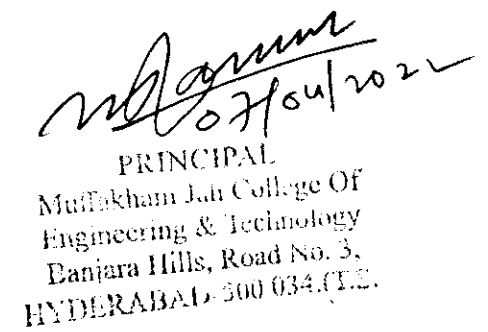 07/04/2022
PRINCIPAL
Muffakham Jah College Of
Engineering & Technology
Banjara Hills, Road No. 3,
HYDERABAD-500 034.(T.S.